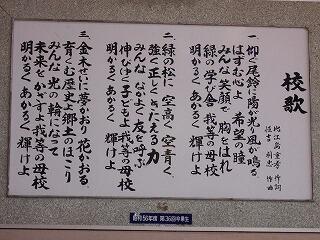 校歌
作詞
作曲
一、仰ぐ尾鈴に陽が光り風が鳴る、
はずむ心よ、希望の瞳
みんな笑顔で胸をはれ
緑の学び舎 我等の母校
明かるく あかるく輝けよ
二、緑の松に 空高く 空青く、
強く正しくきたえる力
みんな なかよく友を呼ぶ
伸びゆく子ども 我等の母校
明かるく あかるく輝けよ
三、金木せいに夢かおり 花かおる、
育くむ歴史よ 郷土のほこり
みんな 光の輪になって
未来をかざすよ 我等の母校
明かるく あかるく 輝けよ
昭和56年度 第36回卒業生